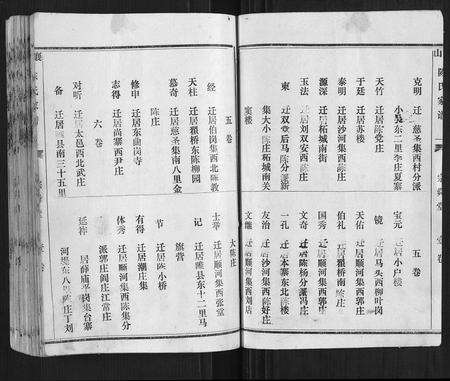 陈氏家谱
克明　迁居慈圣集西村分派
小吴东二里李庄夏寨
天竹　迁居陈党庄
于廷　迁居苏楼
泰明　迁居沙河集西陈庄
源深　迁居柘城南街
玉法　迁居刘双安西陈庄
东　迁双堂后马陈分派新
集大小陈庄柘城南关
窑楼
五卷
宝元　迁居小户楼
镜　迁居马头西柳叶岗
天佑　迁居顺河集西郭庄
伯礼　迁居瓘桥南陈庄
国秀　迁居顺河集西郭庄
文奇　迁居陈杨分派冯庄
一孔　迁本寨东北陈楼
友治　迁居沙河集西陈好庄
文继　迁居顺河集西刘店
五卷
经　迁居伯岗集西北陈教
天柱　迁居瓘桥东陈柳园
慕奇　迁居慈圣集南八里金
陈庄
修甲　迁居东曲岗寺
志得　迁居尚寨西尹庄
六卷
对听　迁居太邑西北武庄
备　迁居县南三十五里
大陈庄
士举　迁居顺河集西张堂
记　迁居睢县东十二里马
旗营
节　迁居陈小桥
有得　迁居潮庄集
体秀　迁居顺河集西陈集分
派郭庄阎庄江常庄
延祥　居薛庙李岗集台寨
河堤东八里陈庄丁刘